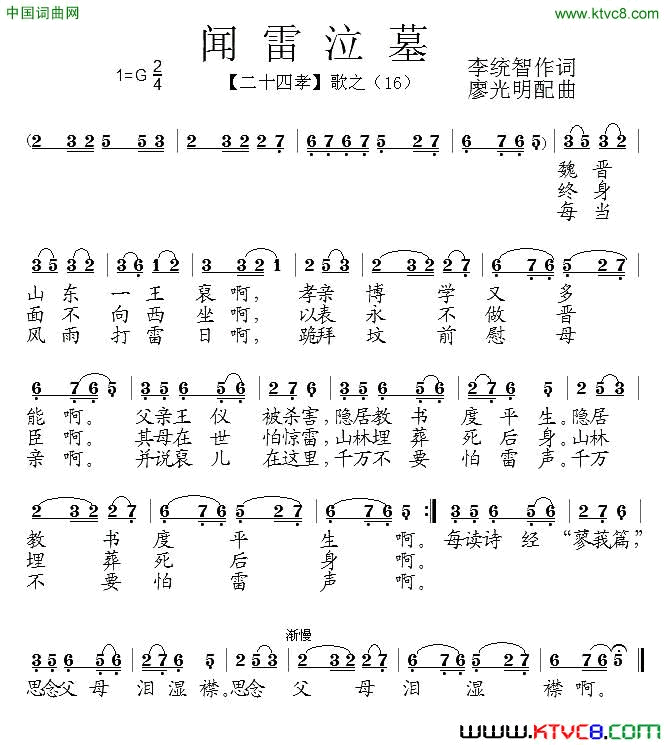 中国词曲网
www.ktvc8.com
闻雷泣墓
1=G 2/4
【二十四孝】歌之（16）
李统智作词
廖光明配曲
(2 32 5 53 | 2 32 2 27 | 6767 67 | 6 76 5) | 35 32
魏晋
终身
每当
35 32 | 36 12 | 3 332 | 25 35 | 2 32 27 | 6 76 | 5 27
山东一王裒啊，孝亲博学又多
面不向西坐啊，以表永不做晋
风雨打雷日啊，跪拜坟前慰母
6 76 5 | 35 6 56 | 27 6 | 35 6 56 | 276 5 | 2 53
能啊。父亲王仪被杀害，隐居教书度平生。隐居
臣啊。其母在世怕惊雷，山林埋葬死后身。山林
亲啊。并说裒儿在这里，千万不要怕雷声。千万
2 32 27 | 6 76 56 | 6 76 5 :| 35 6 56 | 27 6
教书度平生啊。每读诗经“蓼莪篇，”
埋葬死后身啊。
不要怕雷声啊。
渐慢
35 6 56 | 276 5 | 2 53 | 2 32 27 | 6 76 56 | 6 765
思念父母泪湿襟。思念父母泪湿襟啊。
www.KTVC8.com